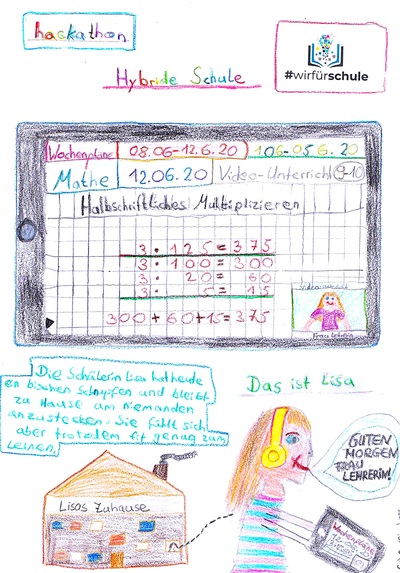 hackathon
#wirfürschule
Hybride Schule
Wochenpläne 08.06-12.6.20 1.06-05.6.20
Mathe 12.06.20 Video-Unterricht 9-10
Halbschriftliches Multiplizieren
3 · 125 = 375
3 · 100 = 300
3 · 20 = 60
3 · 5 = 15
300 + 60 + 15 = 375
Frau Lehrerin
Die Schülerin Lisa hat heute
ein bischen Schnupfen und bleibt
zu Hause um niemanden
anzustecken. Sie fühlt sich
aber trotzdem fit genug zum
Lernen.
Das ist Lisa
GUTEN
MORGEN
FRAU
LEHRERIN!
Lisas Zuhause
Wochenpläne